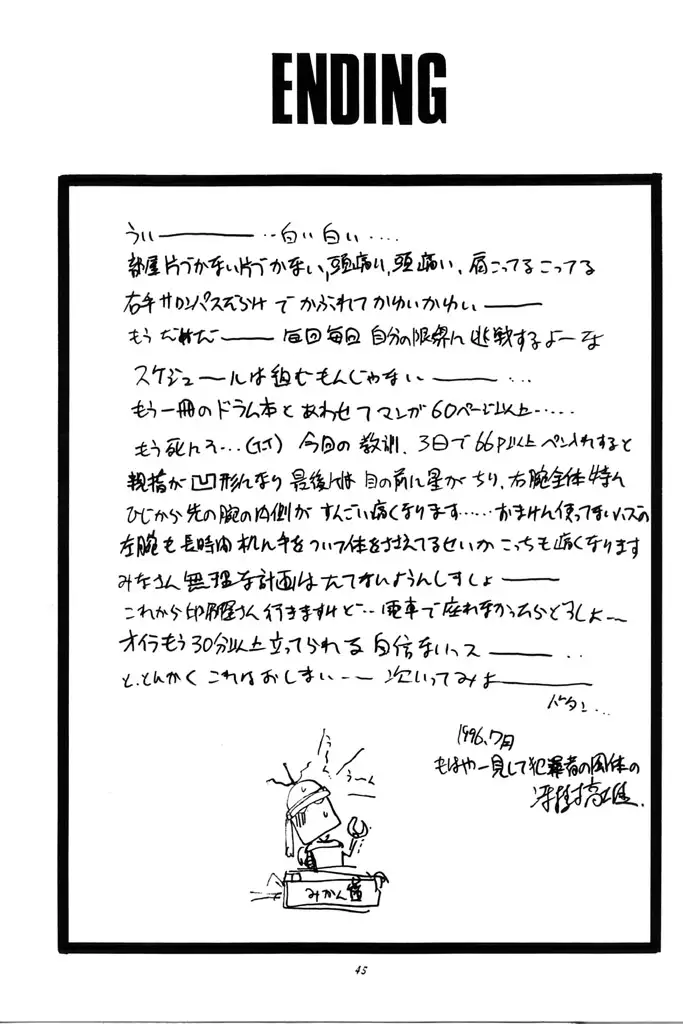 ENDING
うぃ――――‥白い白い‥‥
部屋片づかない片づかない,頭痛い,頭痛い,肩こってるこってる
右手サロンパスだらけでかぶれてかゆいかゆい――
もうだめだ―― 毎回毎回自分の限界に挑戦するよーな
スケジュールは組むもんじゃない―― …
もう一冊のドラム本とあわせてマンガ60ページ以上……
もう死んでる…(T.T) 今回の教訓、3日で66P以上ペン入れすると
親指が凹形になり最後には目の前に星がちり、右腕全体特に
ひじから先の腕の内側がすんごい痛くなります……おまけに使ってないハズの
左腕も長時間机に手をついて体をささえてるせいかこっちも痛くなります
みなさん無理な計画はたてないようにしましょ――
これから印刷屋さん行きますけど‥ 電車で座れなかったらどうしよ~
オイラもう30分以上立ってられる自信ないっス―― ‥
と、とにかくこれはおしまい―― 次いってみよ――
バタン…
1996.7月
もはや一見して犯罪者の風体の
う～ん
う～ん
みかん箱
45